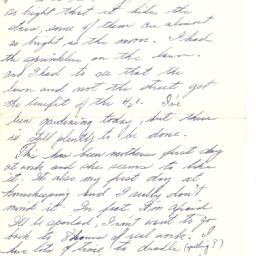 so bright that it hides the
stars, some of them are almost
as bright as the moon. I had
the sprinkler on the lawn
and I had to see that the
lawn and not the street got
the benefit of the H2O. I've
been gardening today, but there
is still plenty to be done.
This has been mothers first day
at work and she seems to have
it. Its also my first day at
housekeeping and I really don't
mind it. In fact I'm afraid
I'll be spoiled, I won't want to go
back to 8 hours of real work. I
have lots of time, to dawdle (spelling?)